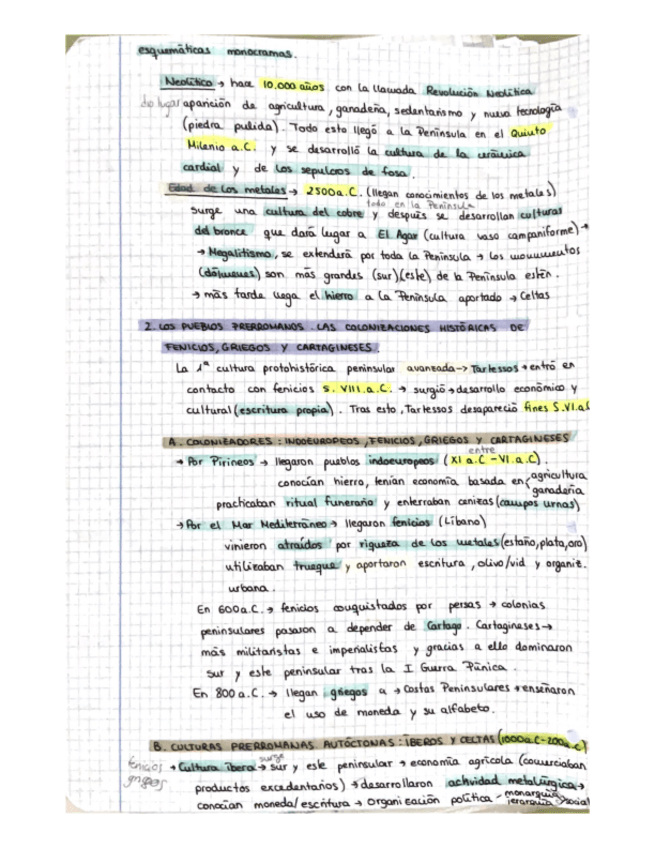 esquemáticas monocromas.
Neolítico → hace 10.000 años con la llamada Revolución Neolítica
da lugar aparición de agricultura, ganadería, sedentarismo y nueva tecnología
(piedra pulida). Todo esto llegó a la Península en el Quinto
Milenio a.C. y se desarrolló la cultura de la cerámica
cardial y de los sepulcros de fosa.
Edad de los metales → 2500 a.C. (llegan conocimientos de los metales)
todo en la Península
surge una cultura del cobre y después se desarrollan culturas
del bronce que dará lugar a El Agar (cultura vaso campaniforme) →
→ Megalitismo, se extenderá por toda la Península → los monumentos
(dólmenes) son más grandes (sur)(este) de la Península están.
→ más tarde llega el hierro a la Península aportado → Celtas
2. LOS PUEBLOS PRERROMANOS. LAS COLONIZACIONES HISTÓRICAS DE
FENICIOS, GRIEGOS Y CARTAGINESES.
La 1ª cultura protohistórica peninsular avanzada → Tartessos → entró en
contacto con fenicios S. VIII.a.C. → surgió → desarrollo económico y
cultural (escritura propia). Tras esto, Tartessos desapareció fines S.VI.a.C
A. COLONIZADORES: INDOEUROPEOS, FENICIOS, GRIEGOS Y CARTAGINESES
→ Por Pirineos → llegaron pueblos indoeuropeos (entre XI a.C - VI.a.C).
conocían hierro, tenían economía basada en { agricultura
ganadería
practicaban ritual funerario y enterraban cenizas (campos urnas)
→ Por el Mar Mediterráneo → llegaron fenicios (Líbano)
vinieron atraídos por riqueza de los metales (estaño, plata, oro)
utilizaban trueque y aportaron escritura, olivo/vid y organiz.
urbana.
En 600 a.C. → fenicios conquistados por persas → colonias
peninsulares pasaron a depender de Cartago. Cartagineses →
más militaristas e imperialistas y gracias a ello dominaron
sur y este peninsular tras la I Guerra Púnica.
En 800 a.C. → llegan griegos a → Costas Peninsulares → enseñaron
el uso de moneda y su alfabeto.
B. CULTURAS PRERROMANAS AUTÓCTONAS: ÍBEROS Y CELTAS (1000a.C-200a.C)
fenicios → Cultura íbera → surge sur y este peninsular → economía agrícola (comerciaban
griegos productos excedentarios) → desarrollaron actividad metalúrgica →
conocían moneda/escritura → Organización política - monarquía
jerarquía social